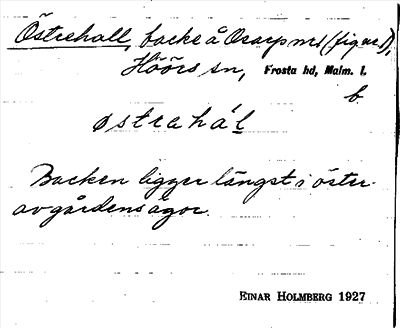 Östrehall, backe å Osarp n:r 1 (fig ur 1),
Höörs sn, Frosta hd, Malm. l.
b.
østrahá l
Backen ligger längst i öster
av gårdens ägor.
EINAR HOLMBERG 1927